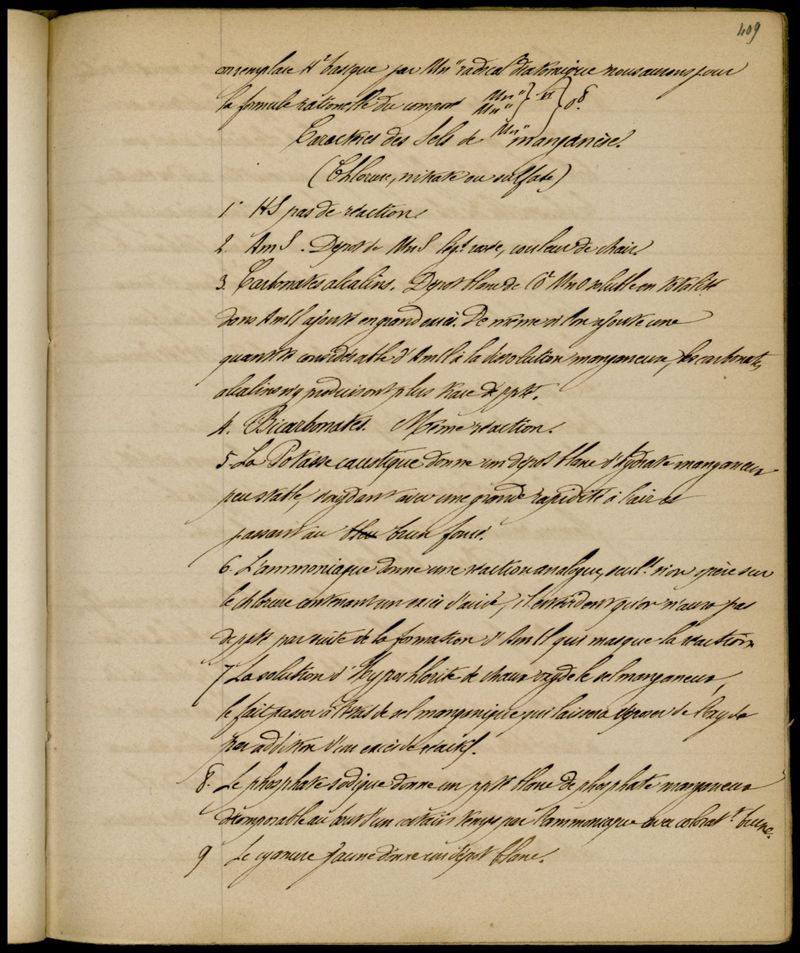 409
on remplace H² basique par Mn" radical diatomique nous aurons pour
la formule rationnelle du composé Mn" Mn" Mn" } VI } O⁸
Caractères des Sels de manganèse.
(Chlorure, nitrate ou sulfate)
1° HS pas de réaction.
2. AmS. Dépot de MnS légt rose, couleur de chair.
3. Carbonates alcalins. Dépot blanc de CO² MnO soluble en totalité
dans AmCl ajouté en grand excès. De même si l'on ajoute une
quantité considérable d'AmCl à la dissolution manganeuse, les carbonates
alcalins n'y produiront plus trace de ppté.
4. Bicarbonates. Même réaction.
5. La Potasse caustique donne un dépot blanc d'hydrate manganeux
peu stable, s'oxydant avec une grande rapidité à l'air et
passant au bleu brun foncé.
6. L'ammoniaque donne une réaction analogue, seult si on opère sur
le chlorure contenant un excès d'acide, il est évident qu'on n'aura pas
de ppté par suite de la formation d'AmCl qui masque la réaction
7. La solution d'Hypochlorite de chaux oxyde le sel manganeux,
le fait passer à l'état de sel manganique qui laissera déposer de l'oxyde
par addition d'un excès de réactif.
8. Le phosphate sodique donne un ppté blanc de phosphate manganeux
décomposable au bout d'un certain temps par l'ammoniaque avec colorat.n brune.
9 Le cyanure jaune donne un dépot blanc.